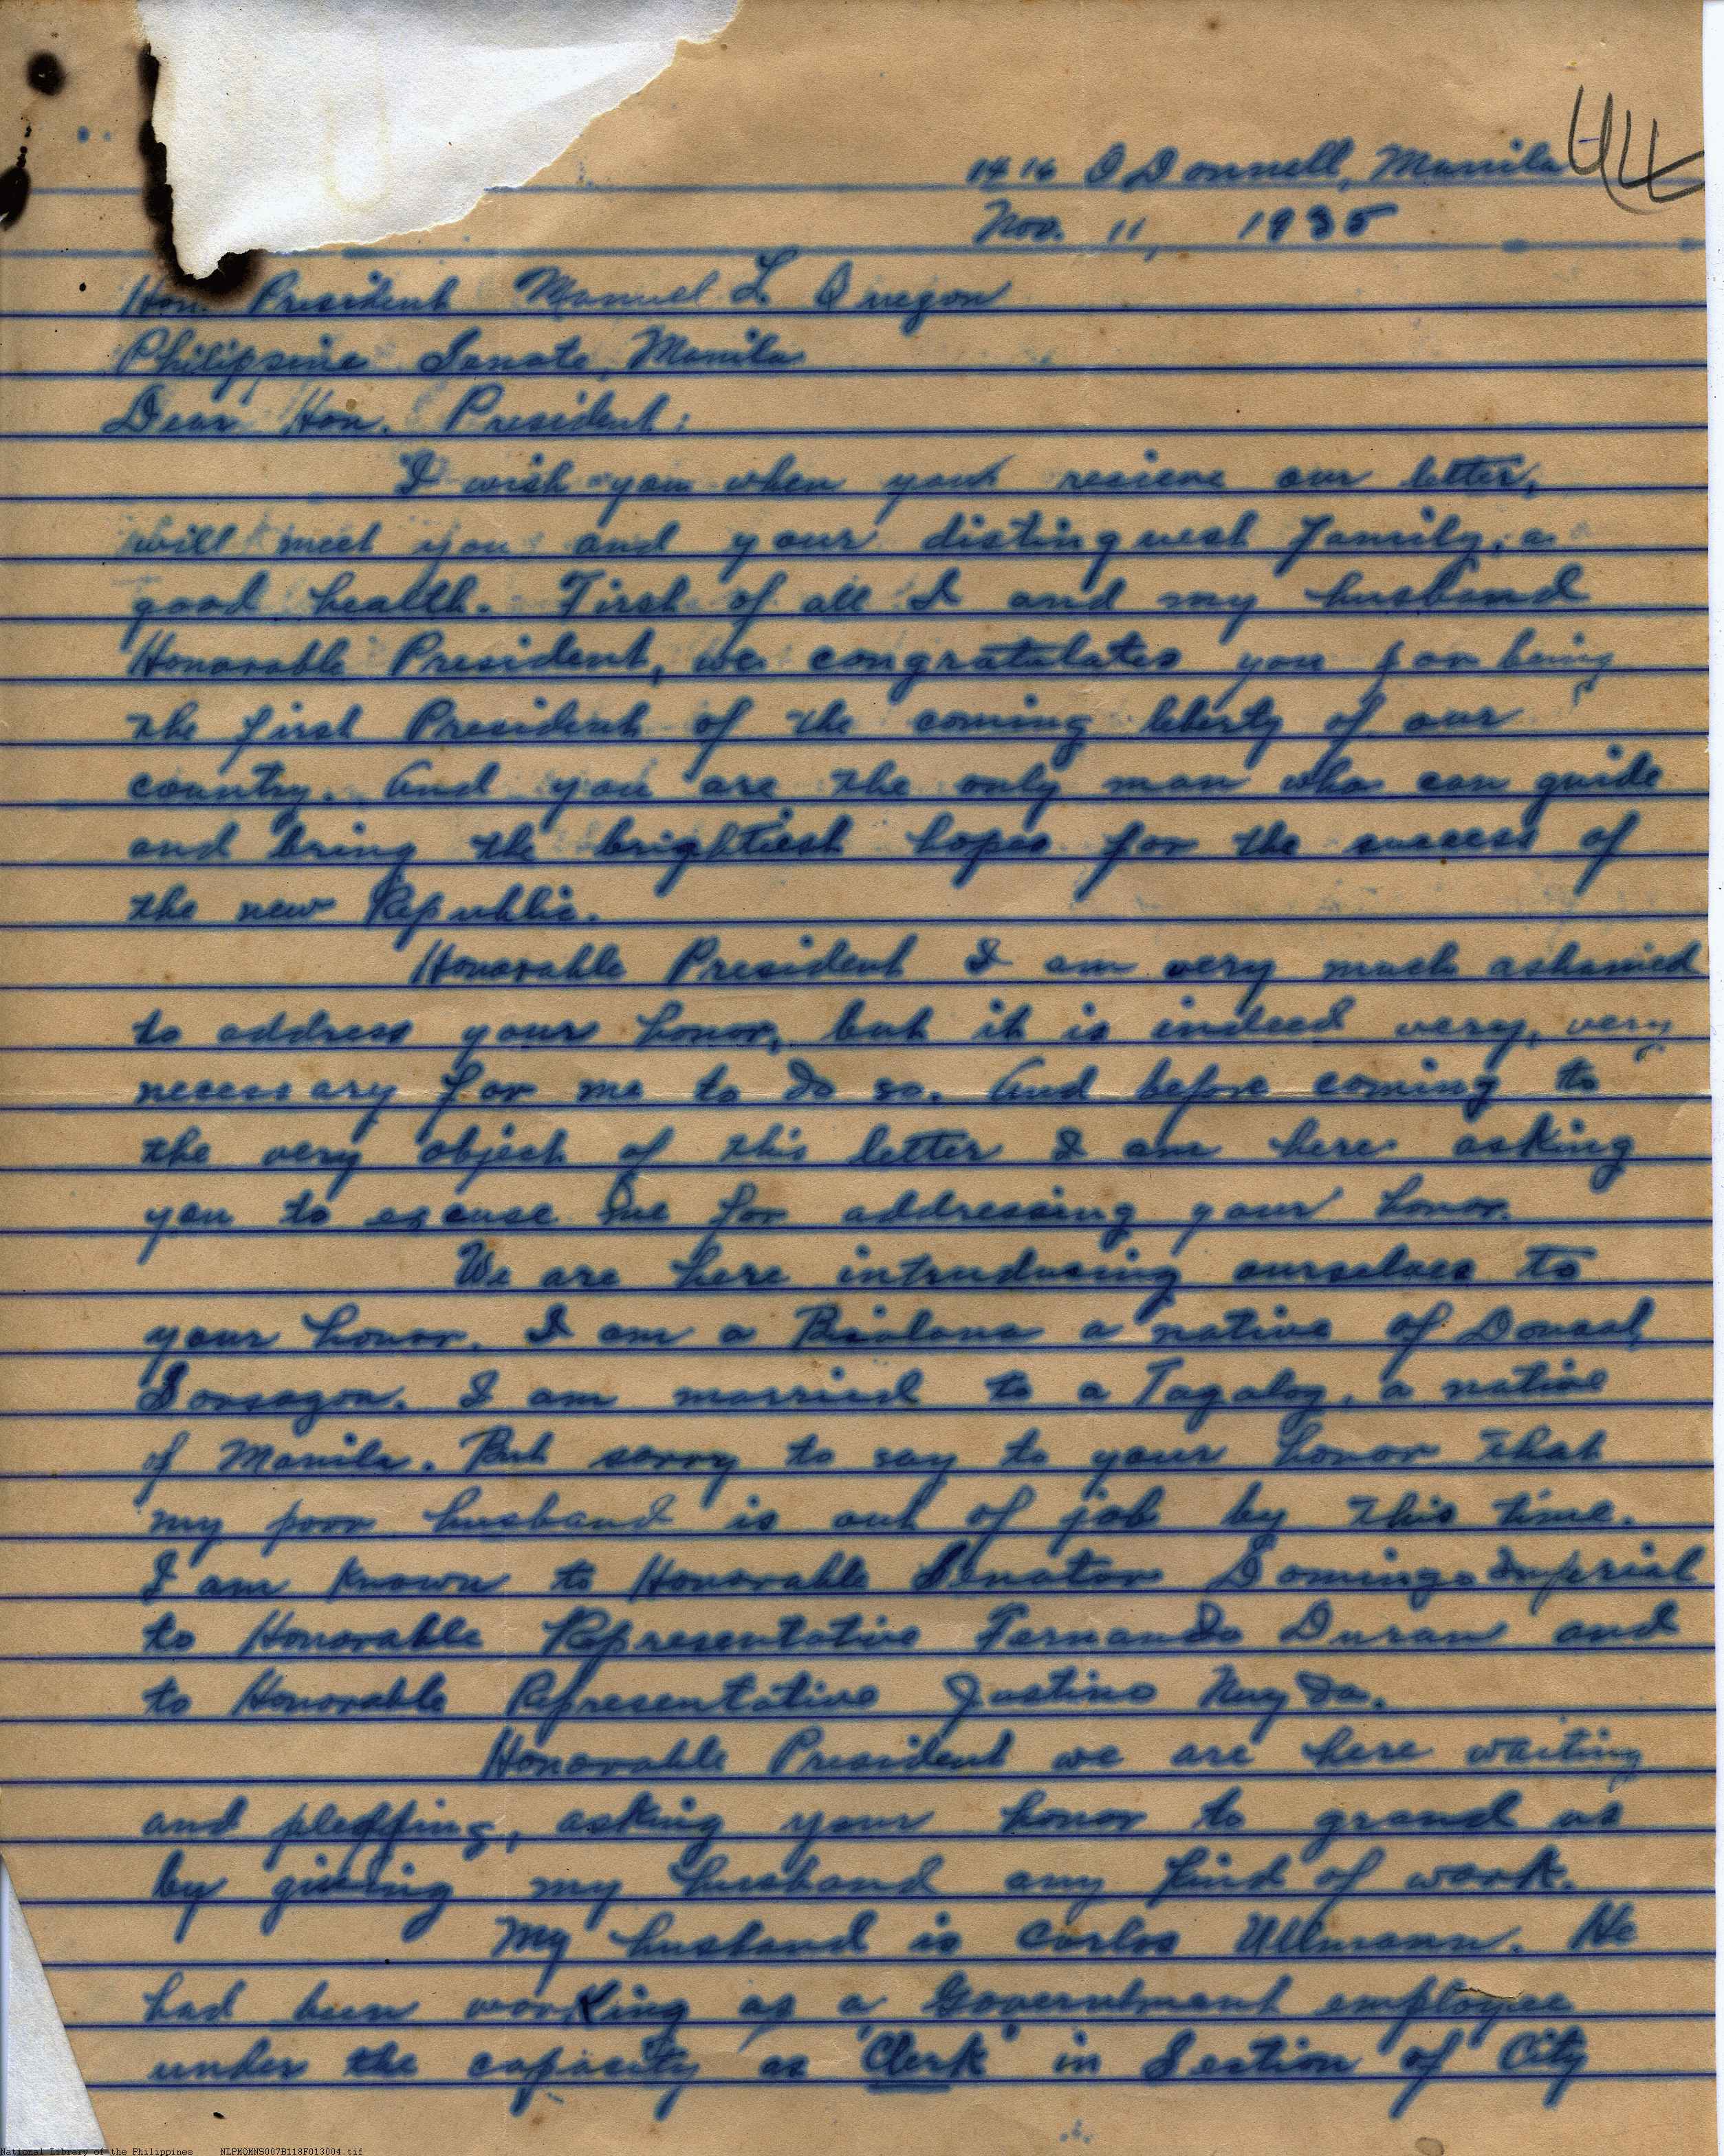 1416 O Donnell, Manila
Nov. 11, 1935
Hon. President Manuel L. Quezon
Philippine Senate, Manila
Dear Hon. President:
I wish you when your resieve our letter,
will meet you and your distinguesh family, a
good health. First of all I and my husband
Honorable President, we congratulates you for being
the first President of the coming liberty of our
country. And you are the only man who can guide
and bring the brightiest hopes for the success of
the new Republic.
Honorable President I am very much ashamed
to address your honor, but it is indeed very, very
necessary for me to do so. And before coming to
the very object of this letter I am here asking
you to excuse me for addressing your honor.
We are here intruducing ourselves to
your honor. I am a Bicolana a native of Donsol,
Sorsogon. I am married to a Tagalog, a native
of Manila. But sorry to say to your honor that
my poor husband is out of job by this time.
I am known to Honorable Senator Domingo Imperial
to Honorable Representative Fernando Duran and
to Honorable Representative Justino Nuyda.
Honorable President we are here waiting
and asking your honor to grand us
by giving my husband any kind of work.
My husband is Carlos Ullmann. He
had been working as a Government employee
under the capacity as "Clerk" in Section of City
National Library of the Philippines NLPMQMNS007B118F013004.tif